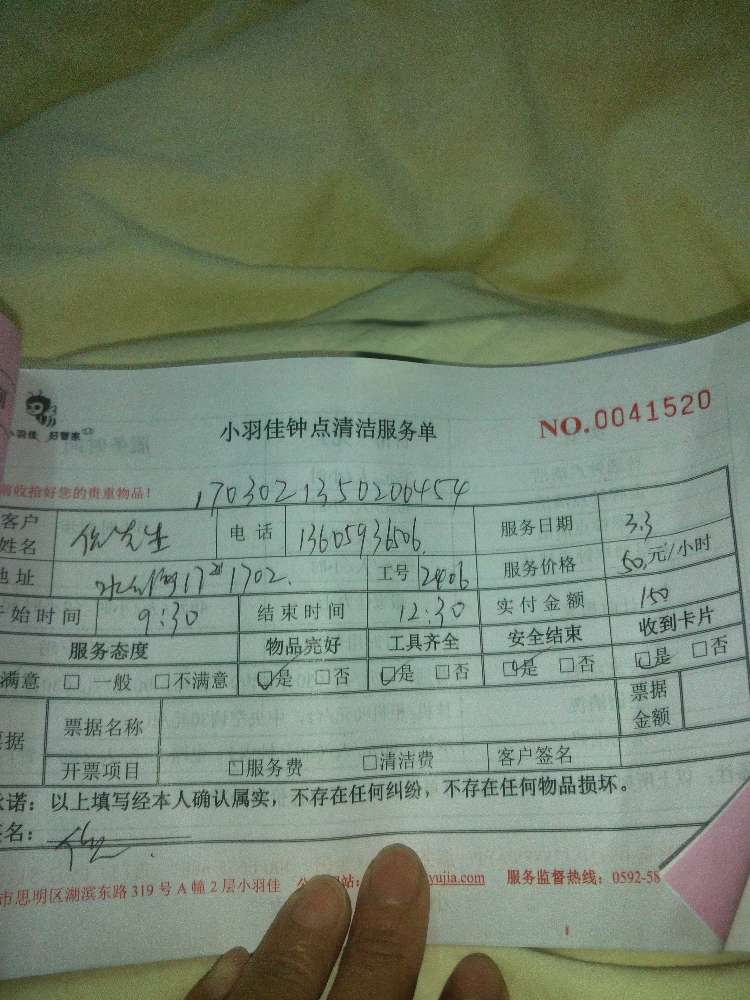 小羽佳 好管家
小羽佳钟点清洁服务单
NO.0041520
前收拾好您的贵重物品！
1703021350206454
客户姓名 任先生 电话 13605936506. 服务日期 3.3
地址 1702. 工号 2406 服务价格 50元/小时
开始时间 9:30 结束时间 12:30 实付金额 150
服务态度 物品完好 工具齐全 安全结束 收到卡片
满意 □ 一般 □不满意 ☑是 □否 ☑是 □否 ☑是 □否 ☑是 □否
票据名称 票据金额
开票项目 □服务费 □清洁费 客户签名
承诺：以上填写经本人确认属实，不存在任何纠纷，不存在任何物品损坏。
签名：
市思明区湖滨东路 319 号 A 幢 2 层小羽佳 yujia.com 服务监督热线：0592-58